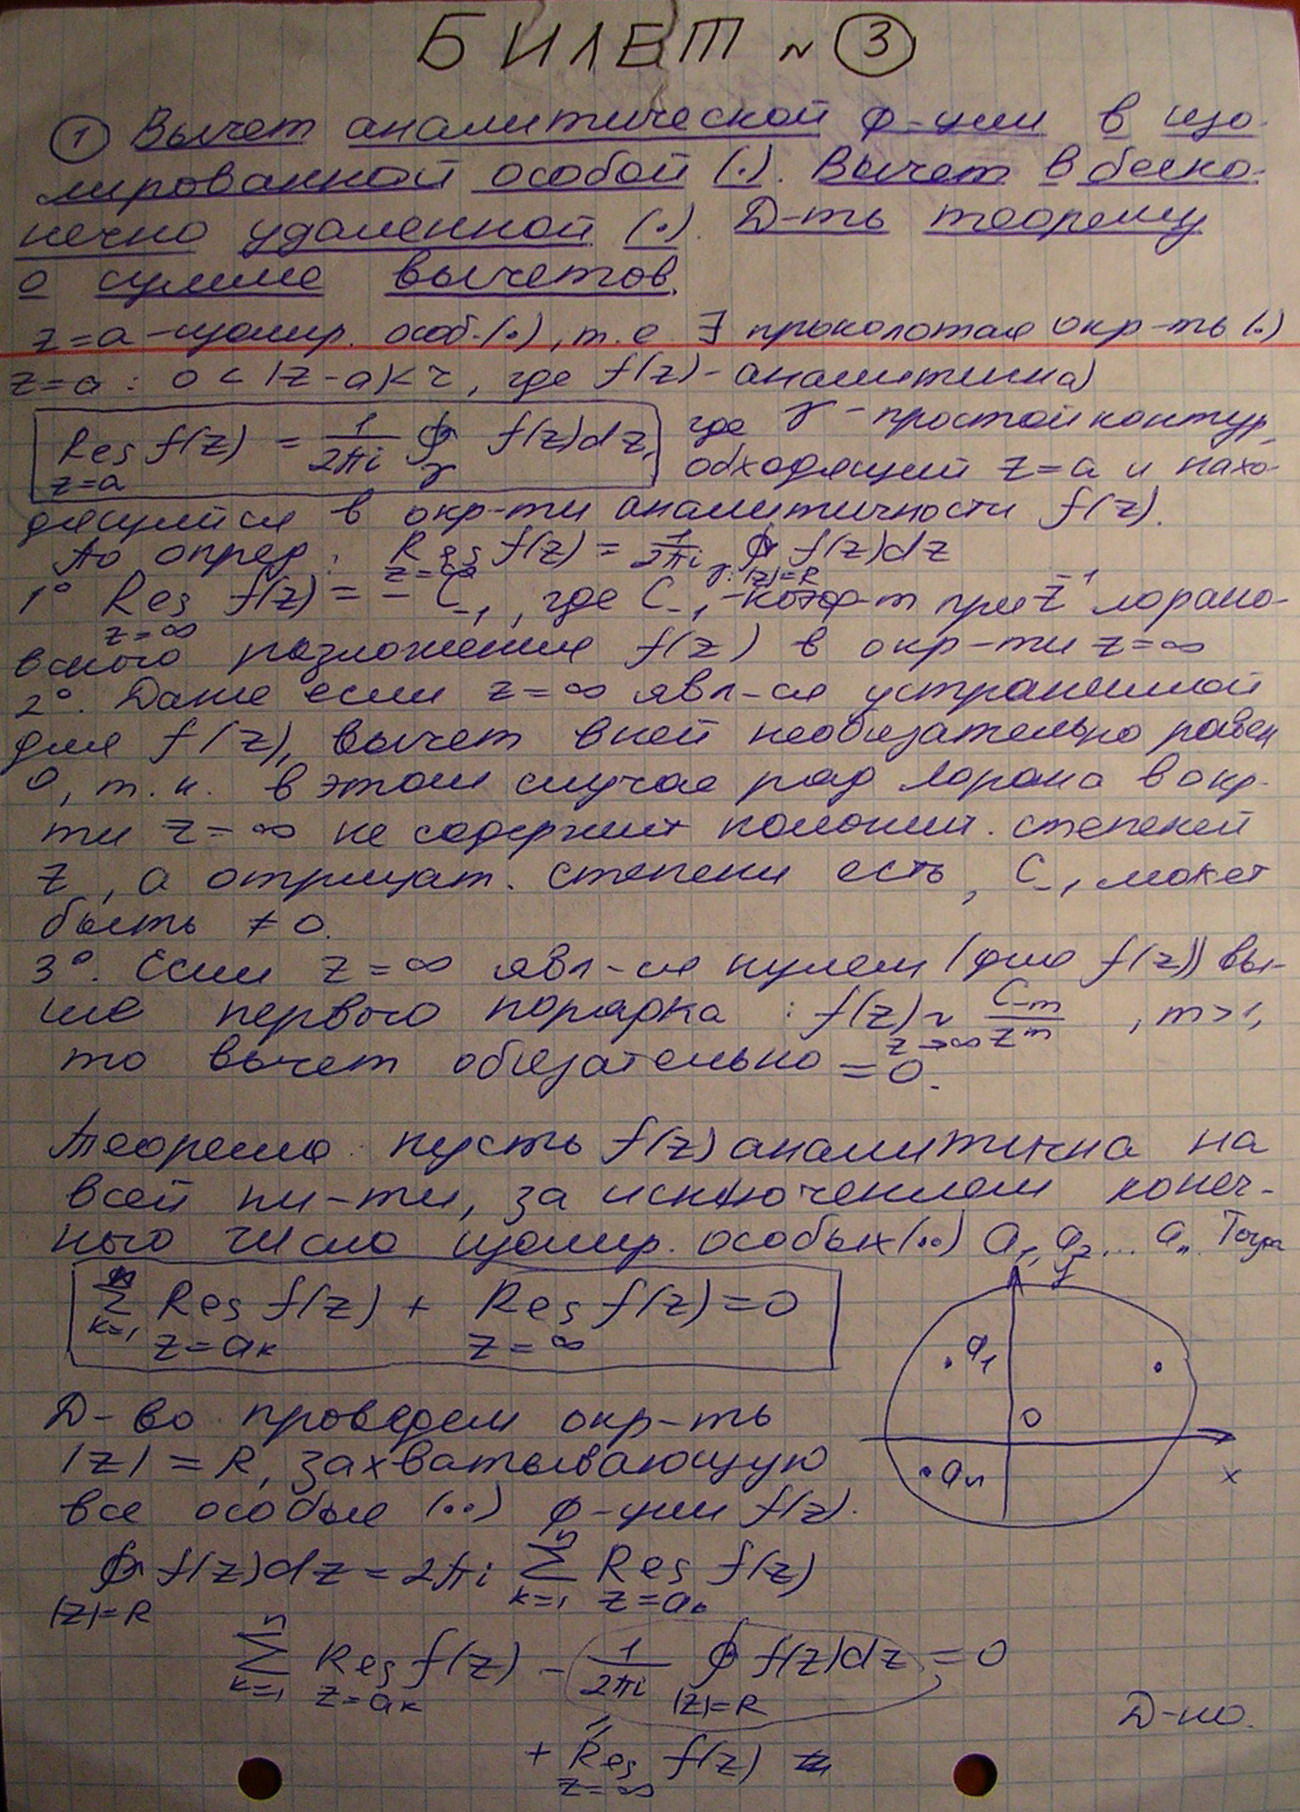 БИЛЕТ № 3
① Вычет аналитической ф-ции в изо-
лированной особой (·). Вычет в беско-
нечно удаленной (·). Д-ть теорему
о сумме вычетов.
z=a – изолир. особ. (·), т.е. ∃ проколотая окр-ть (·)
z=a : 0<|z-a|<r, где f(z) - аналитична)
Res f(z) = 1/2πi ∮ f(z)dz, где γ - простой контур,
z=a γ обходящий z=a и нахо-
дящийся в окр-ти аналитичности f(z).
По опред: Res f(z) = 1/2πi ∮ f(z)dz
z=∞ γ:|z|=R
1° Res f(z) = - C₋₁, где C₋₁ - коэф-т при z⁻¹ лорано-
z=∞
вского разложения f(z) в окр-ти z=∞
2°. Даже если z=∞ явл-ся устранимой
для f(z), вычет в ней необязательно равен
0, т.к. в этом случае ряд Лорана в окр-
ти z=∞ не содержит полож. степеней
z, а отрицат. степени есть, C₋₁ может
быть ≠ 0.
3°. Если z=∞ явл-ся нулем (для f(z)) вы-
ше первого порядка : f(z) ~ C₋ₘ/zᵐ, m>1,
z→∞
то вычет обязательно = 0.
Теорема: пусть f(z) аналитична на
всей пл-ти, за исключением конеч-
ного числа изолир. особых (··) a₁, a₂ ... aₙ. Тогда
n
∑ Res f(z) + Res f(z) = 0
k=1 z=aₖ z=∞
y
a₁
0
aₙ
x
Д-во проведем окр-ть
|z| = R, захватывающую
все особые (··) ф-ции f(z).
∮ f(z)dz = 2πi ∑ Res f(z)
|z|=R k=1 z=aₖ
n
∑ Res f(z) - 1/2πi ∮ f(z)dz = 0
k=1 z=aₖ |z|=R
Д-но.
+ Res f(z)
z=∞